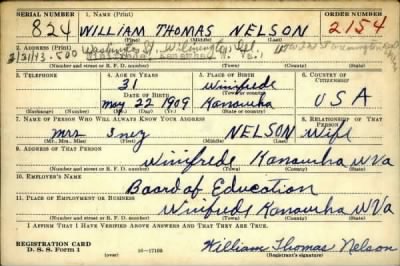 SERIAL NUMBER 1. NAME (Print) ORDER NUMBER
824 WILLIAM THOMAS NELSON 2154
(First) (Middle) (Last)
2. ADDRESS (Print)
2/21/43 500 Washington St. Wilmington, Del.
(Number and street or R. F. D. number) (Town) (County) (State)
3. TELEPHONE 4. AGE IN YEARS 5. PLACE OF BIRTH 6. COUNTRY OF CITIZENSHIP
31 Winifrede
DATE OF BIRTH
May 22 1909 Kanawha USA
(Exchange) (Number) (Mo.) (Day) (Yr.) (State or country)
7. NAME OF PERSON WHO WILL ALWAYS KNOW YOUR ADDRESS 8. RELATIONSHIP OF THAT PERSON
Mrs Inez NELSON Wife
(Mr., Mrs., Miss) (First) (Middle) (Last)
9. ADDRESS OF THAT PERSON
Winifrede Kanawha WVa
(Number and street or R. F. D. number) (Town) (County) (State)
10. EMPLOYER'S NAME
Board of Education
11. PLACE OF EMPLOYMENT OR BUSINESS
Winifrede Kanawha WVa
(Number and street or R. F. D. number) (Town) (County) (State)
I AFFIRM THAT I HAVE VERIFIED ABOVE ANSWERS AND THAT THEY ARE TRUE.
REGISTRATION CARD
D. S. S. Form 1 (over) 16—17105 William Thomas Nelson
(Registrant's signature)